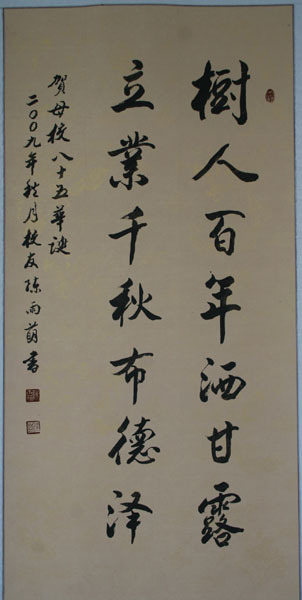 樹人百年洒甘露
立業千秋布德泽
賀母校八十五華诞
二００九年秋月校友陈雨萌書